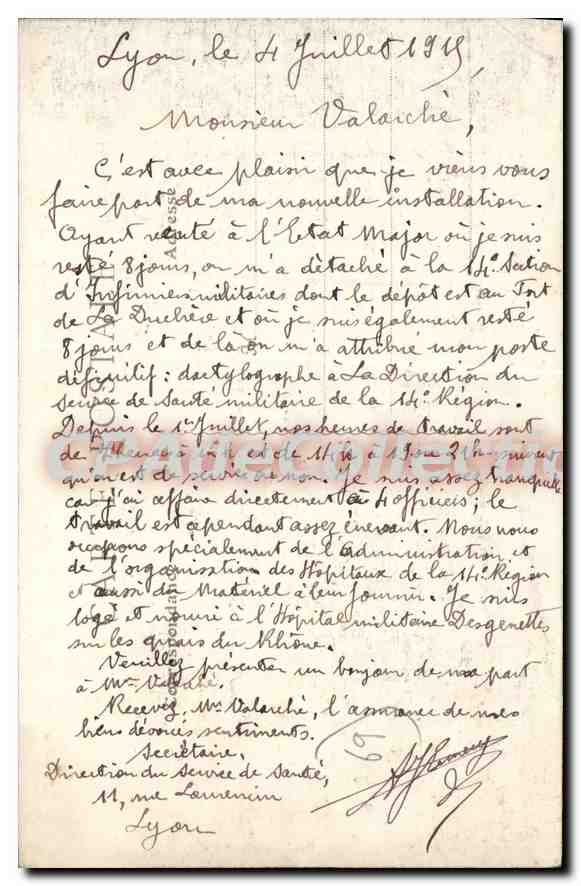 Lyon, le 4 Juillet 1915,
Monsieur Valarché,
C'est avec plaisir que je viens vous
faire part de ma nouvelle installation.
Ayant à l'Etat Major où je suis
resté 8 jours, on m'a détaché à la 14e Section
d'Infirmiers militaires dont le dépôt est au Fort
de La Duchère et où je suis également resté
8 jours et de là on m'a attribué mon poste
définitif : dactylographe à La Direction du
Service de Santé militaire de la 14e Région.
Depuis le 1er Juillet, nos heures de travail sont
de à et de 14h à 19 ou 21h suivant
qu'on est de service ou non. Je suis assez tranquille
car j'ai affaire directement à 4 officiers ; le
travail est cependant assez énervant. Nous nous
occupons spécialement de l'administration et
de l'organisation des Hôpitaux de la 14e Région
et aussi de Matériel à leur fournir. Je suis
logé et nourri à l'Hôpital militaire Desgenettes
sur les quais du Rhône.
Veuillez présenter un bonjour de ma part
à Mme Valarché.
Recevez, Mr Valarché, l'assurance de mes
biens dévoués sentiments.
Secrétaire,
Direction du Service de Santé,
11, rue Laurencin
Lyon
69
Adresse
CARTE POSTALE
Correspondance
CPArtCollection